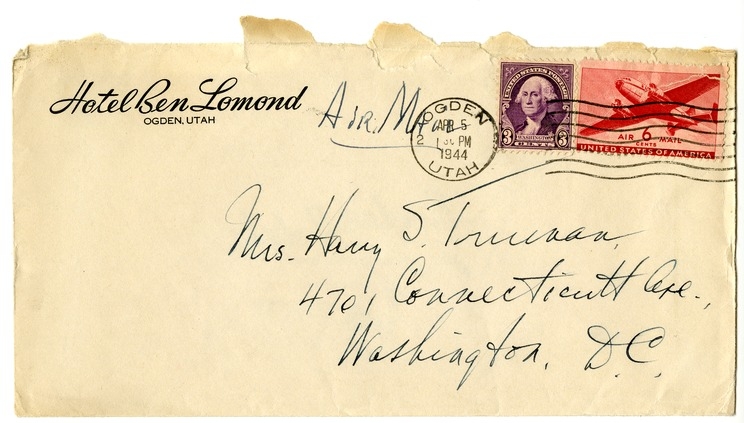 Hotel Ben Lomond
OGDEN, UTAH
Air Mail
OGDEN
APR 5
2 30 PM
1944
UTAH
UNITED STATES POSTAGE
3 WASHINGTON 3
AIR 6 MAIL
CENTS
UNITED STATES OF AMERICA
Mrs. Harry S. Truman,
4701 Connecticutt Ave.,
Washington, D.C.